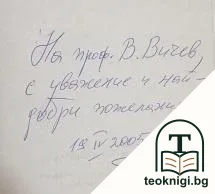 На проф. В. Вичев,
с уважение и най-
добри пожелания
19 IV 2005
teoknigi.bg